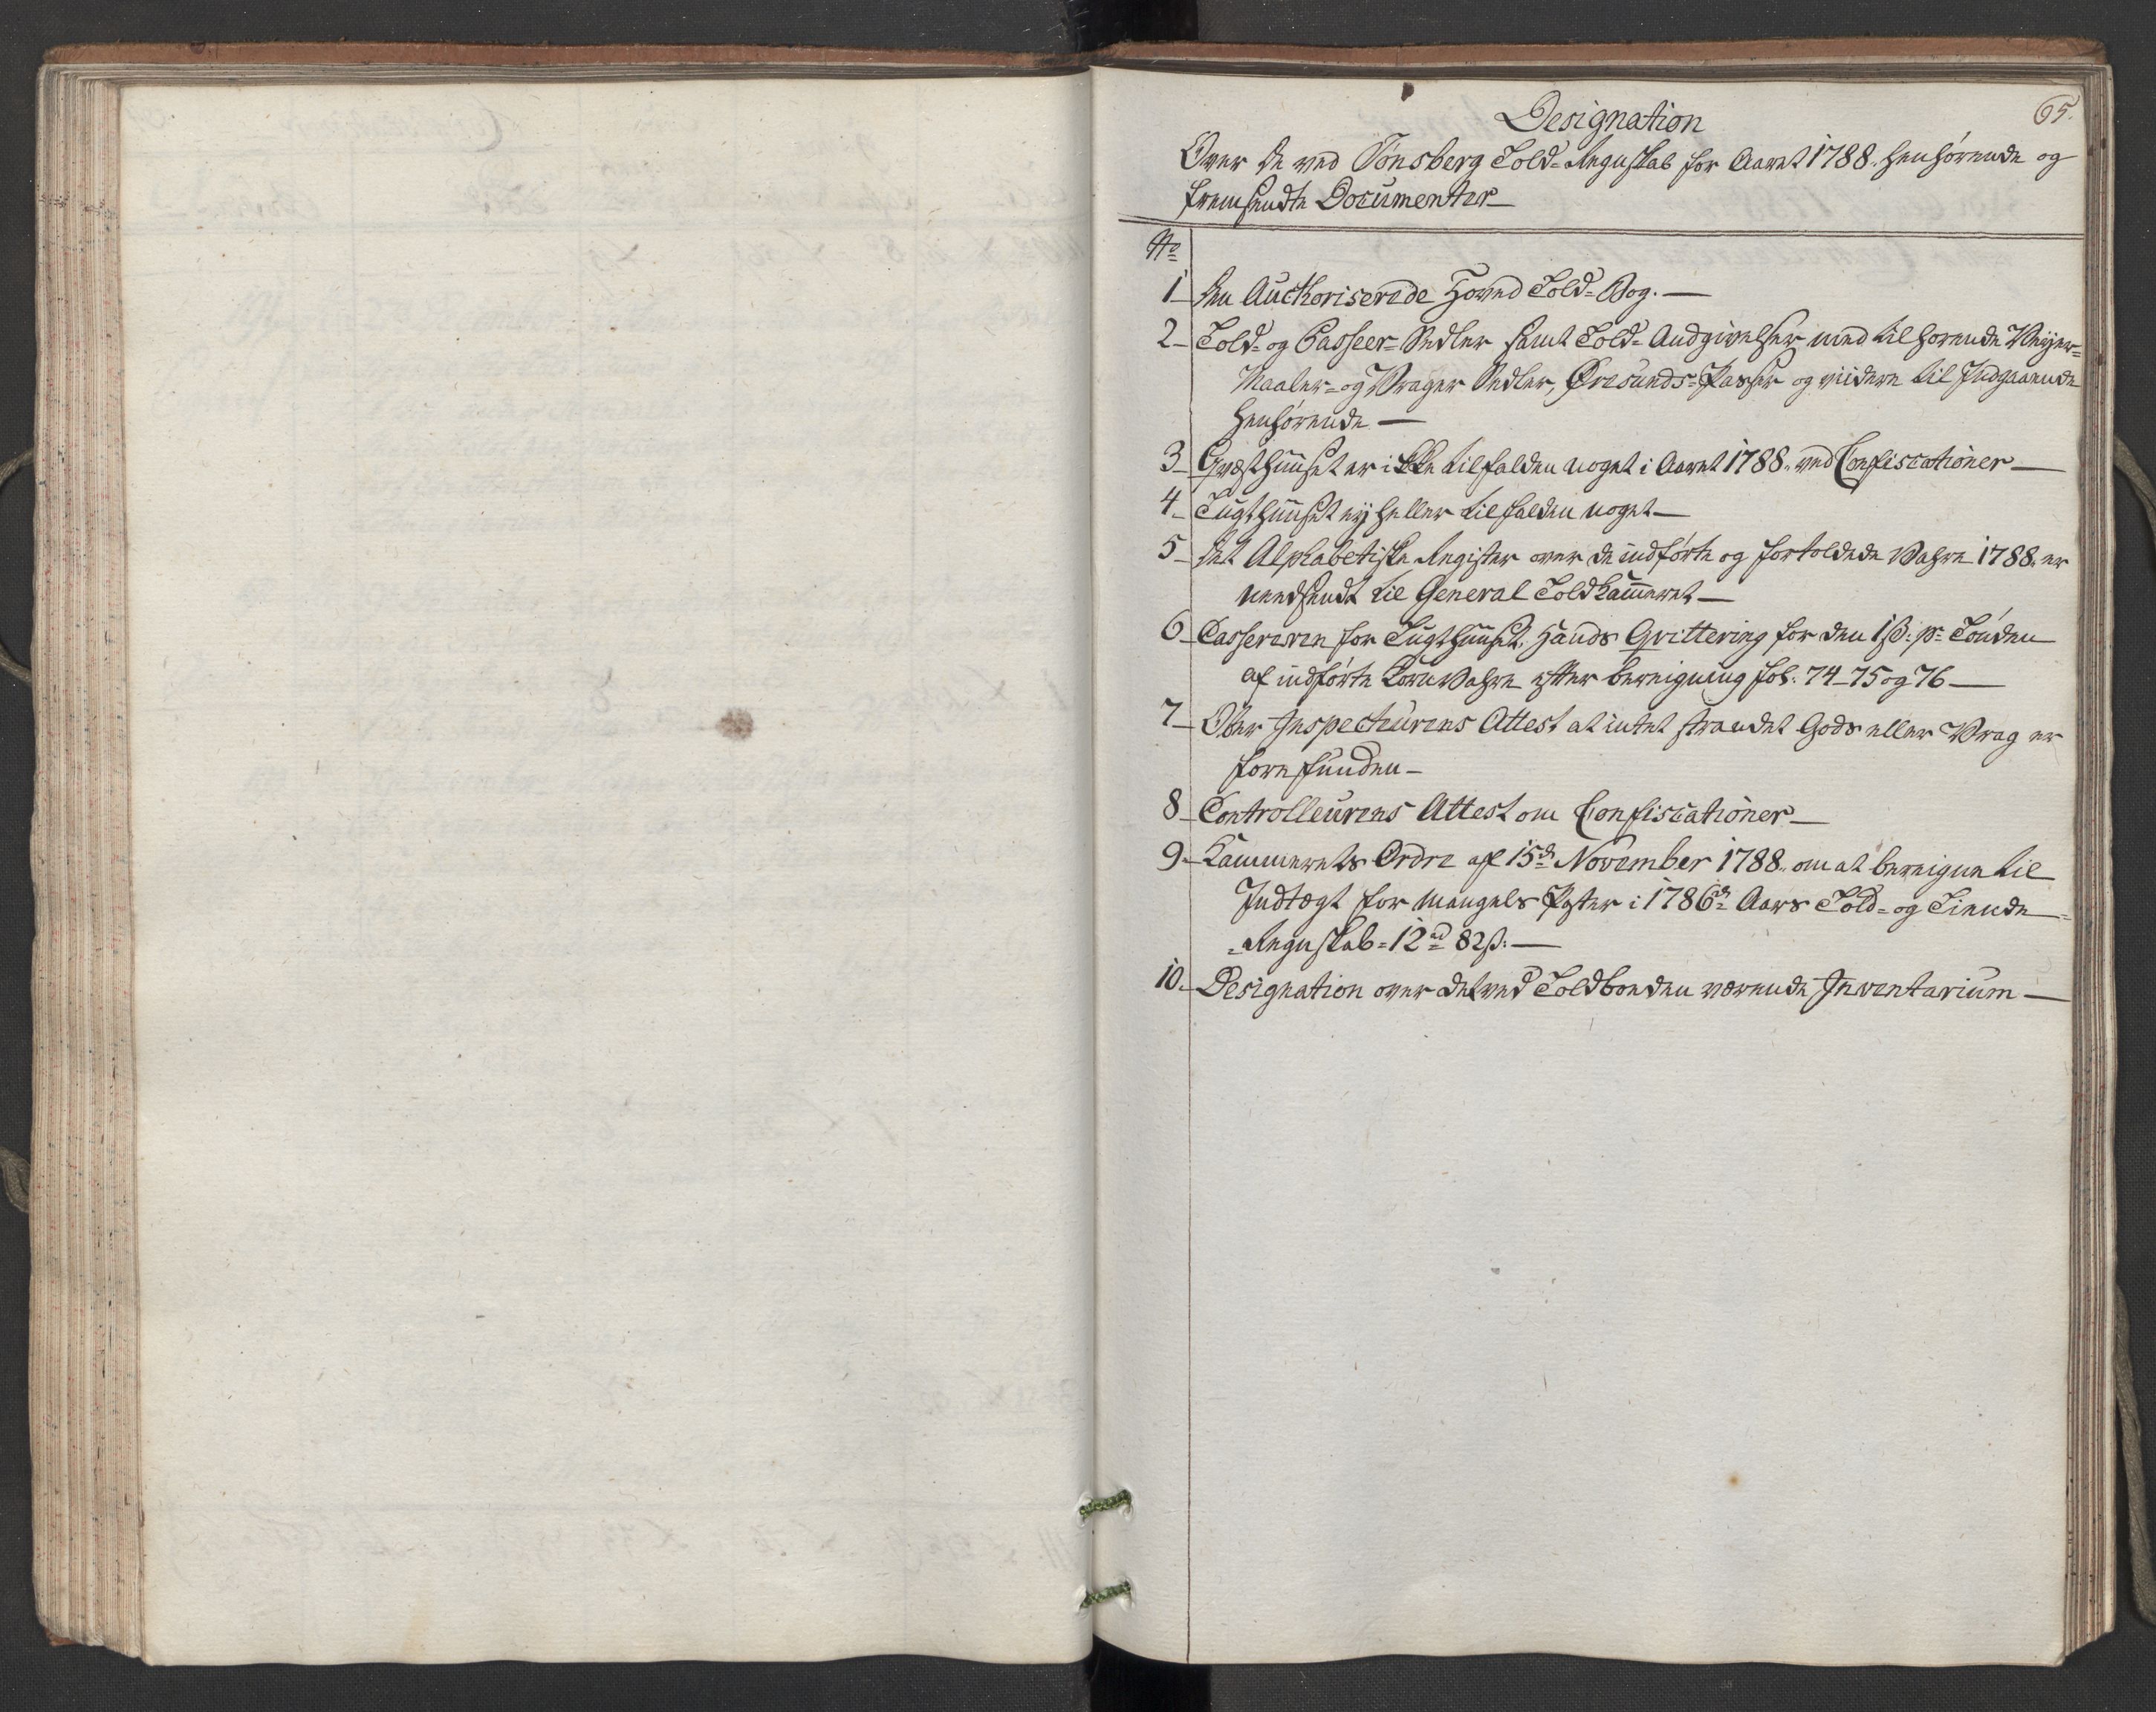 95.
Designation
Over de ved Tønsberg Told-Regnskab for Aaret 1788. henhørende og
fremsendte Documenter
No
1 den Aucthoriserede Hoved Told-Bog.
2 Told- og Passeer-Sedler samt Told-Andgivelser med tilhørende Veyer-
Maaler- og Vrager Sedler, Øresunds-Passer og viidere til Indgaaende
henhørende
3 Qvæsthuuset er ikke tilfalden noget i Aaret 1788. ved Confiscationer
4 Tugthuuset ej heller tilfalden noget
5 det Alphabetiske Register over de indførte og fortoldede Vahre 1788. er
nedsendt til General Toldkammeret
6 Cassereren for Tugthuuset, Hands Qvittering for den 1 ß: pr Tønden
af indførte Kornvahre efter beregning fol: 74-75 og 76
7 Ober Inspecteurens Attest at intet strandet Gods eller Vrag er
forefunden
8 Controlleurens Attest om Confiscationer
9 Kammerets Ordre af 15de November 1788. om at beregne til
Indtægt for mangels Poster i 1786de Aars Told- og Tiende-
-Regnskab = 12 rd 82 ß:
10. Designation over det ved Toldboeden værende Inventarium